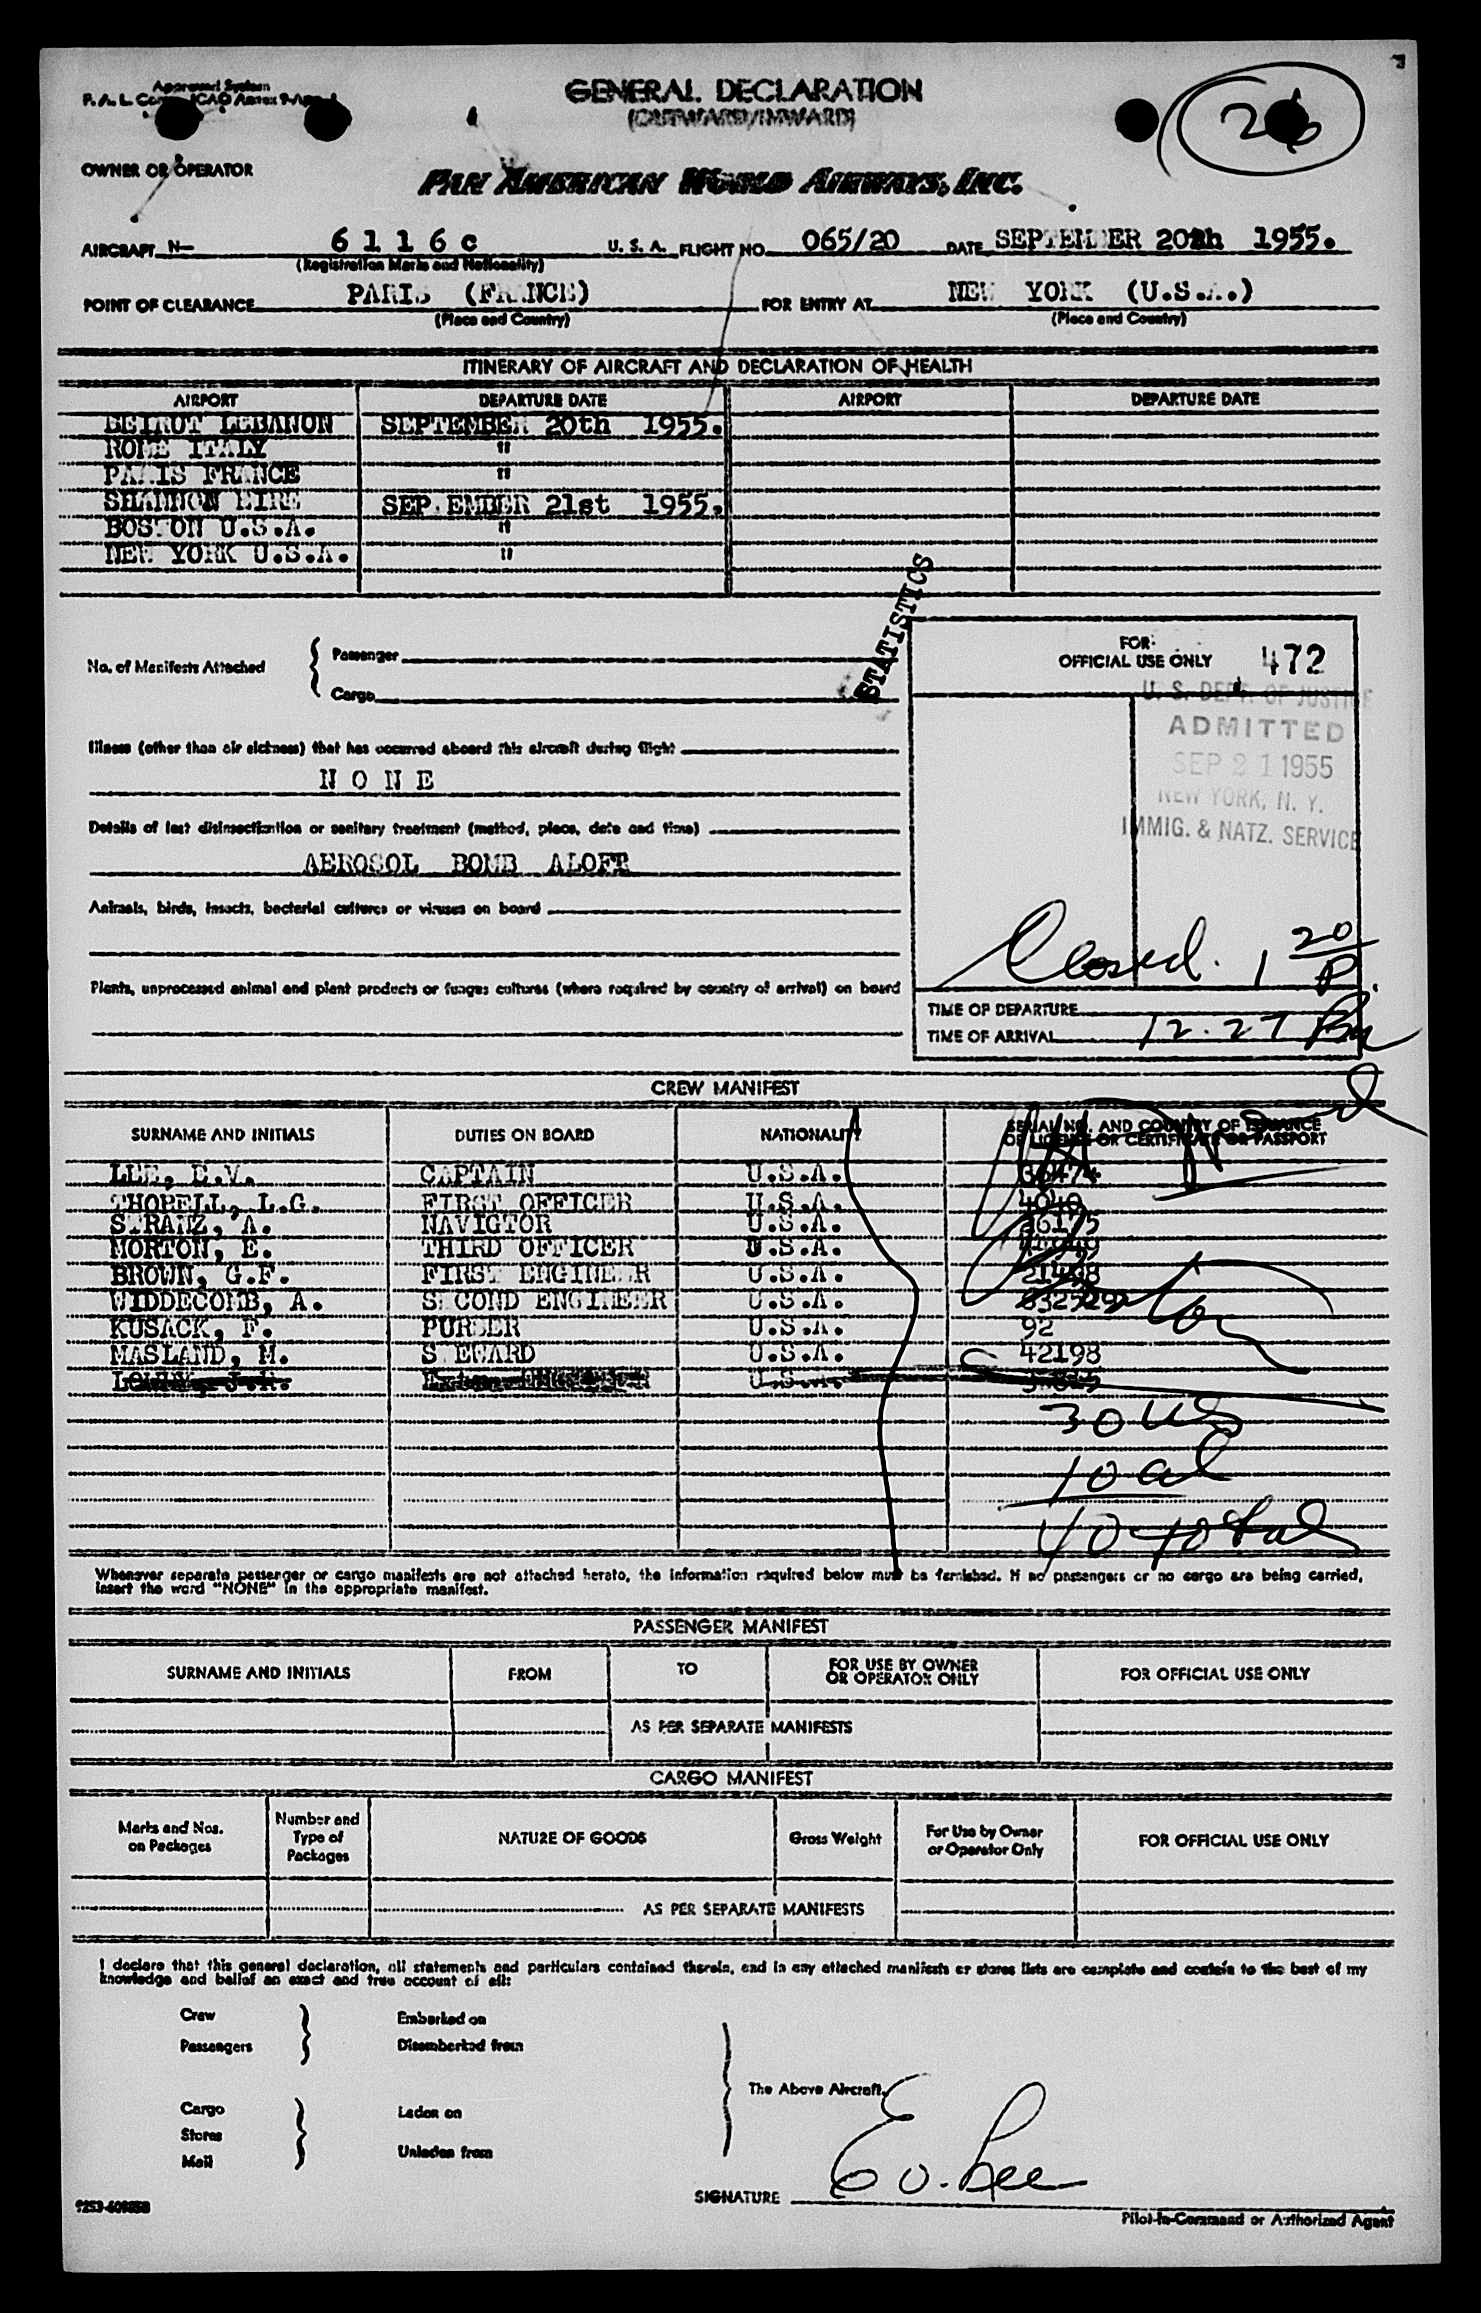 GENERAL DECLARATION
(OUTWARD/INWARD)
26
OWNER OR OPERATOR
PAN AMERICAN WORLD AIRWAYS, INC.
AIRCRAFT N- 6116c U. S. A. FLIGHT NO. 065/20 DATE SEPTEMBER 20th 1955.
(Registration Marks and Nationality)
POINT OF CLEARANCE PARIS (FRANCE) FOR ENTRY AT NEW YORK (U.S.A.)
(Place and Country) (Place and Country)
ITINERARY OF AIRCRAFT AND DECLARATION OF HEALTH
AIRPORT DEPARTURE DATE AIRPORT DEPARTURE DATE
BEIRUT LEBANON SEPTEMBER 20th 1955.
ROME ITALY "
PARIS FRANCE "
SHANNON EIRE SEPTEMBER 21st 1955.
BOSTON U.S.A. "
NEW YORK U.S.A. "
STATISTICS
No. of Manifests Attached { Passenger
Cargo
FOR
OFFICIAL USE ONLY 472
U. S. DEPT. OF JUSTICE
ADMITTED
SEP 21 1955
NEW YORK, N. Y.
IMMIG. & NATZ. SERVICE
Illness (other than air sickness) that has occurred aboard this aircraft during flight
NONE
Details of last disinsectization or sanitary treatment (method, place, date and time)
AEROSOL BOMB ALOFT
Animals, birds, insects, bacterial cultures or viruses on board
Closed. 1 20 P.
Plants, unprocessed animal and plant products or fungus cultures (where required by country of arrival) on board
TIME OF DEPARTURE
TIME OF ARRIVAL 12.27 Pm
CREW MANIFEST
SURNAME AND INITIALS DUTIES ON BOARD NATIONALITY SERIAL NO. AND COUNTRY OF ISSUANCE
OF LICENSE OR CERTIFICATE OR PASSPORT
LEE, E.V. CAPTAIN U.S.A. 36474
THORELL, L.G. FIRST OFFICER U.S.A. 4040
STRANZ, A. NAVIGTOR U.S.A. 26175
MORTON, E. THIRD OFFICER U.S.A.
BROWN, G.F. FIRST ENGINEER U.S.A. 21498
WIDDECOMB, A. SECOND ENGINEER U.S.A.
KUSACK, F. PURSER U.S.A. 92
MASLAND, M. STEWARD U.S.A. 42198
U.S.A.
30 US
10 al
40 total
Whenever separate passenger or cargo manifests are not attached hereto, the information required below must be furnished. If no passengers or no cargo are being carried,
insert the word "NONE" in the appropriate manifest.
PASSENGER MANIFEST
SURNAME AND INITIALS FROM TO FOR USE BY OWNER
OR OPERATOR ONLY FOR OFFICIAL USE ONLY
AS PER SEPARATE MANIFESTS
CARGO MANIFEST
Marks and Nos.
on Packages Number and
Type of
Packages NATURE OF GOODS Gross Weight For Use by Owner
or Operator Only FOR OFFICIAL USE ONLY
AS PER SEPARATE MANIFESTS
I declare that this general declaration, all statements and particulars contained therein, and in any attached manifests or stores lists are complete and contain to the best of my
knowledge and belief an exact and true account of all:
Crew Embarked on
Passengers Disembarked from
The Above Aircraft.
Cargo Laden on
Stores
Mail Unladen from
SIGNATURE E V. Lee
Pilot-in-Command or Authorized Agent